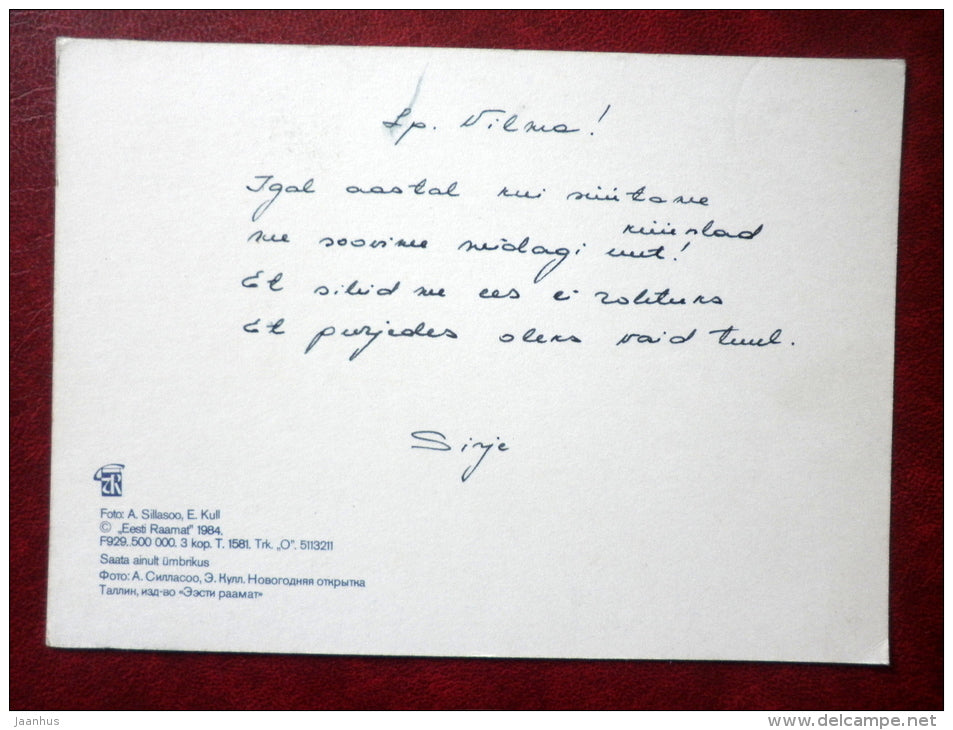 Lp. Vilma!
Igal aastal kui süütame
küünlad
me soovime midagi uut!
Et silmid me ees ei rohtuks
Et purjedes oleks vaid tuul.
Sirje
ER
Foto: A. Sillasoo, E. Kull
© „Eesti Raamat" 1984.
F929. 500 000. 3 kop. T. 1581. Trk. „O". 5113211
Saata ainult ümbrikus
Фото: А. Силласоо, Э. Кулл. Новогодняя открытка
Таллин, изд-во «Ээсти раамат»
jaanhus
www.delcampe.net